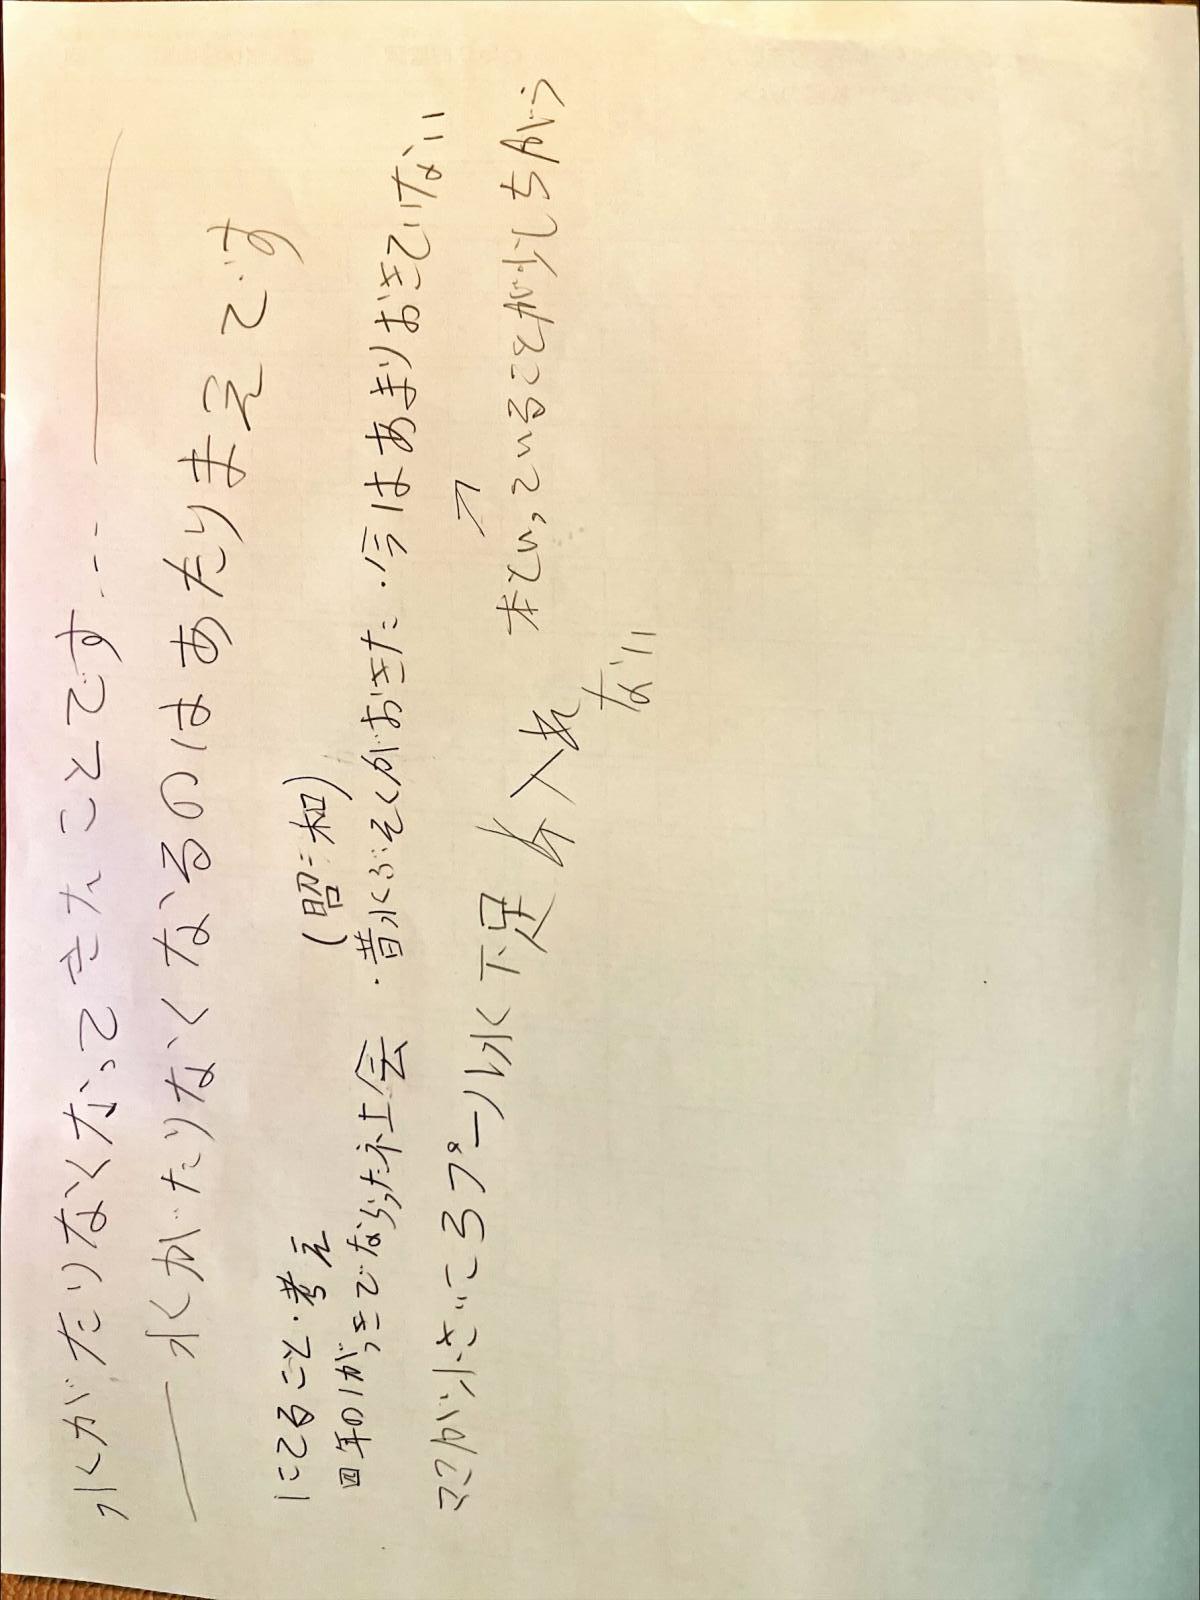 水がたりなくなってきたことです…
水がたりなくなるのはあたりまえです
にてること・考え
(昭=和)
四年の1がっきでならった社会
・昔水ぶそくがおきた・今はあまりおきていない
ママが小さいころプール水不足で入れ
ない
↗
本といっていることが少しちがう